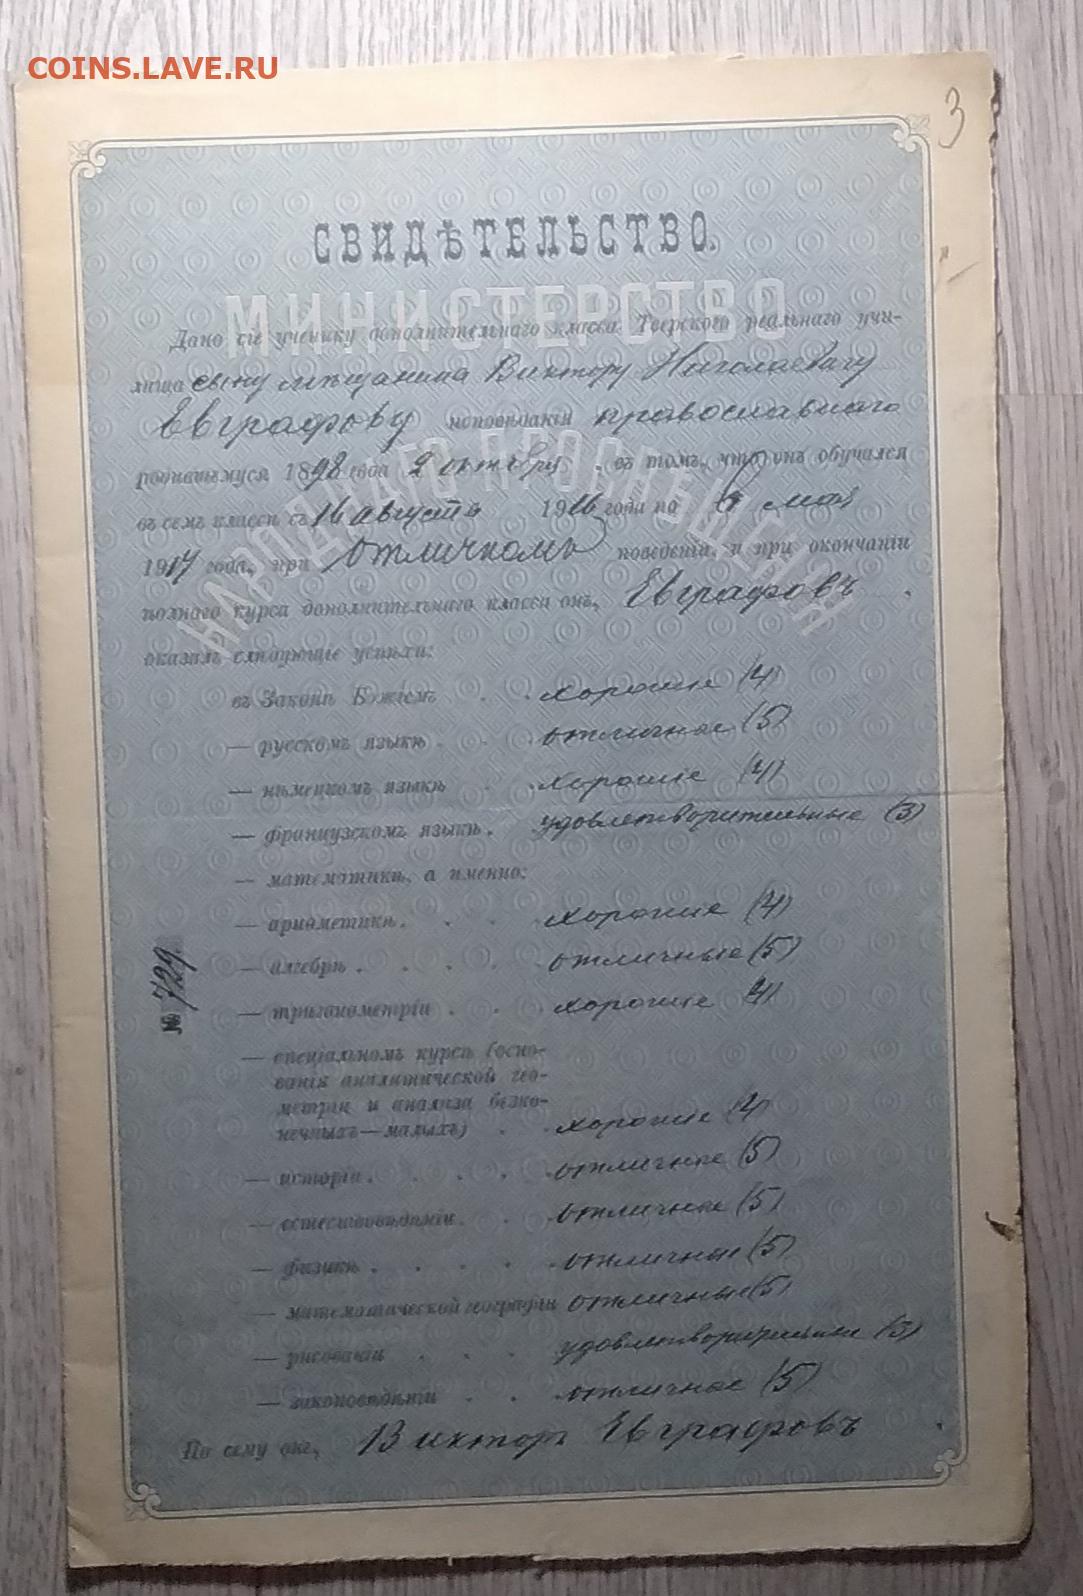 COINS.LAVE.RU
3
СВИДѢТЕЛЬСТВО.
МИНИСТЕРСТВО
НАРОДНАГО ПРОСВѢЩЕНІЯ
Дано сіе ученику дополнительнаго класса Тверского реальнаго учи-
лища сыну мѣщанина Виктору Николаевичу
Евграфову исповѣданія православнаго
родившемуся 1898 года 2 октября, въ томъ, что онъ обучался
въ семъ классѣ съ 16 августа 1916 года по 6 мая
1917 года, при отличномъ поведеніи, и при окончаніи
полнаго курса дополнительнаго класса онъ, Евграфовъ
оказалъ слѣдующіе успѣхи:
въ Законѣ Божіемъ . . хорошіе (4)
— русскомъ языкѣ . . . отличные (5)
— нѣмецкомъ языкѣ . . хорошіе (4)
— французскомъ языкѣ . удовлетворительные (3)
— математикѣ, а именно:
— ариѳметикѣ . . . хорошіе (4)
— алгебрѣ . . . . . отличные (5)
— тригонометріи . . . хорошіе (4)
— спеціальномъ курсѣ (осно-
ванія аналитической гео-
метріи и анализа безко-
нечныхъ—малыхъ) . . хорошіе (4)
— исторіи . . . . . отличные (5)
— естествовѣдѣніи . . отличные (5)
— физикѣ . . . . . отличные (5)
— математической географіи отличные (5)
— рисованіи . . . удовлетворительные (3)
— законовѣдѣніи . . . отличные (5)
По сему онъ, Викторъ Евграфовъ
№ 729.